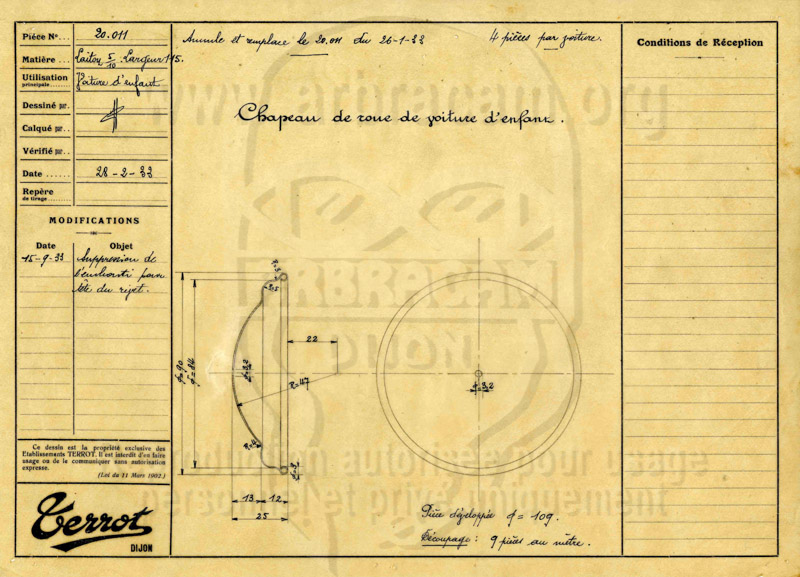 Pièce N°... 20.011
Matière.. Laiton 5/10 Largeur 115.
Utilisation principale...... Voiture d'enfant
Dessiné par.
Calqué par..
Vérifié par..
Date...... 28-2-33
Repère de tirage........
MODIFICATIONS
Date Objet
15-9-33 Suppression de
l'embouti pour
tête du rivet.
Ce dessin est la propriété exclusive des
Etablissements TERROT. Il est interdit d'en faire
usage ou de le communiquer sans autorisation
expresse.
(Loi du 11 Mars 1902.)
Terrot
DIJON
Annule et remplace le 20.011 du 26-1-33
4 pièces par voiture.
Chapeau de roue de voiture d'enfant.
www.arbracam.org
ARBRACAM
DIJON
R=3
R=5
22
φ=90
φ=84
φ=3,2
R=47
φ=3,2
13 12
25
Pièce développée φ=109.
Découpage: 9 pièces au mètre.
Reproduction autorisée pour usage
personnel et privé uniquement
Conditions de Réception